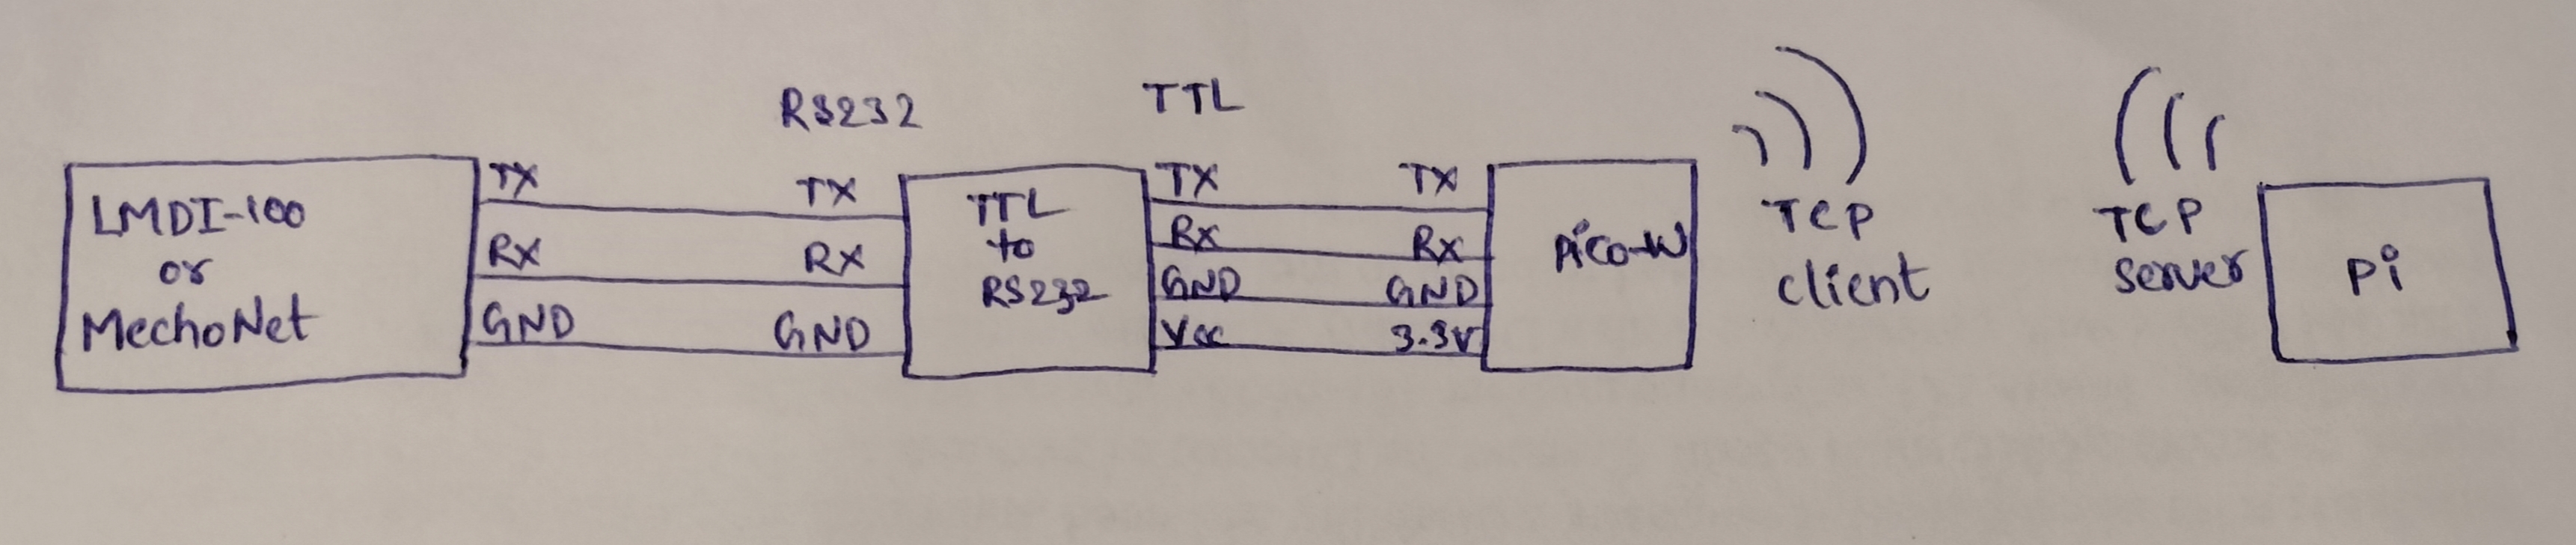 RS232
TTL
LMDI-100
or
MechoNet
TX
RX
GND
TX
RX
GND
TTL
to
RS232
TX
RX
GND
Vcc
TX
RX
GND
3.3V
Pico-W
TCP
client
TCP
server
Pi